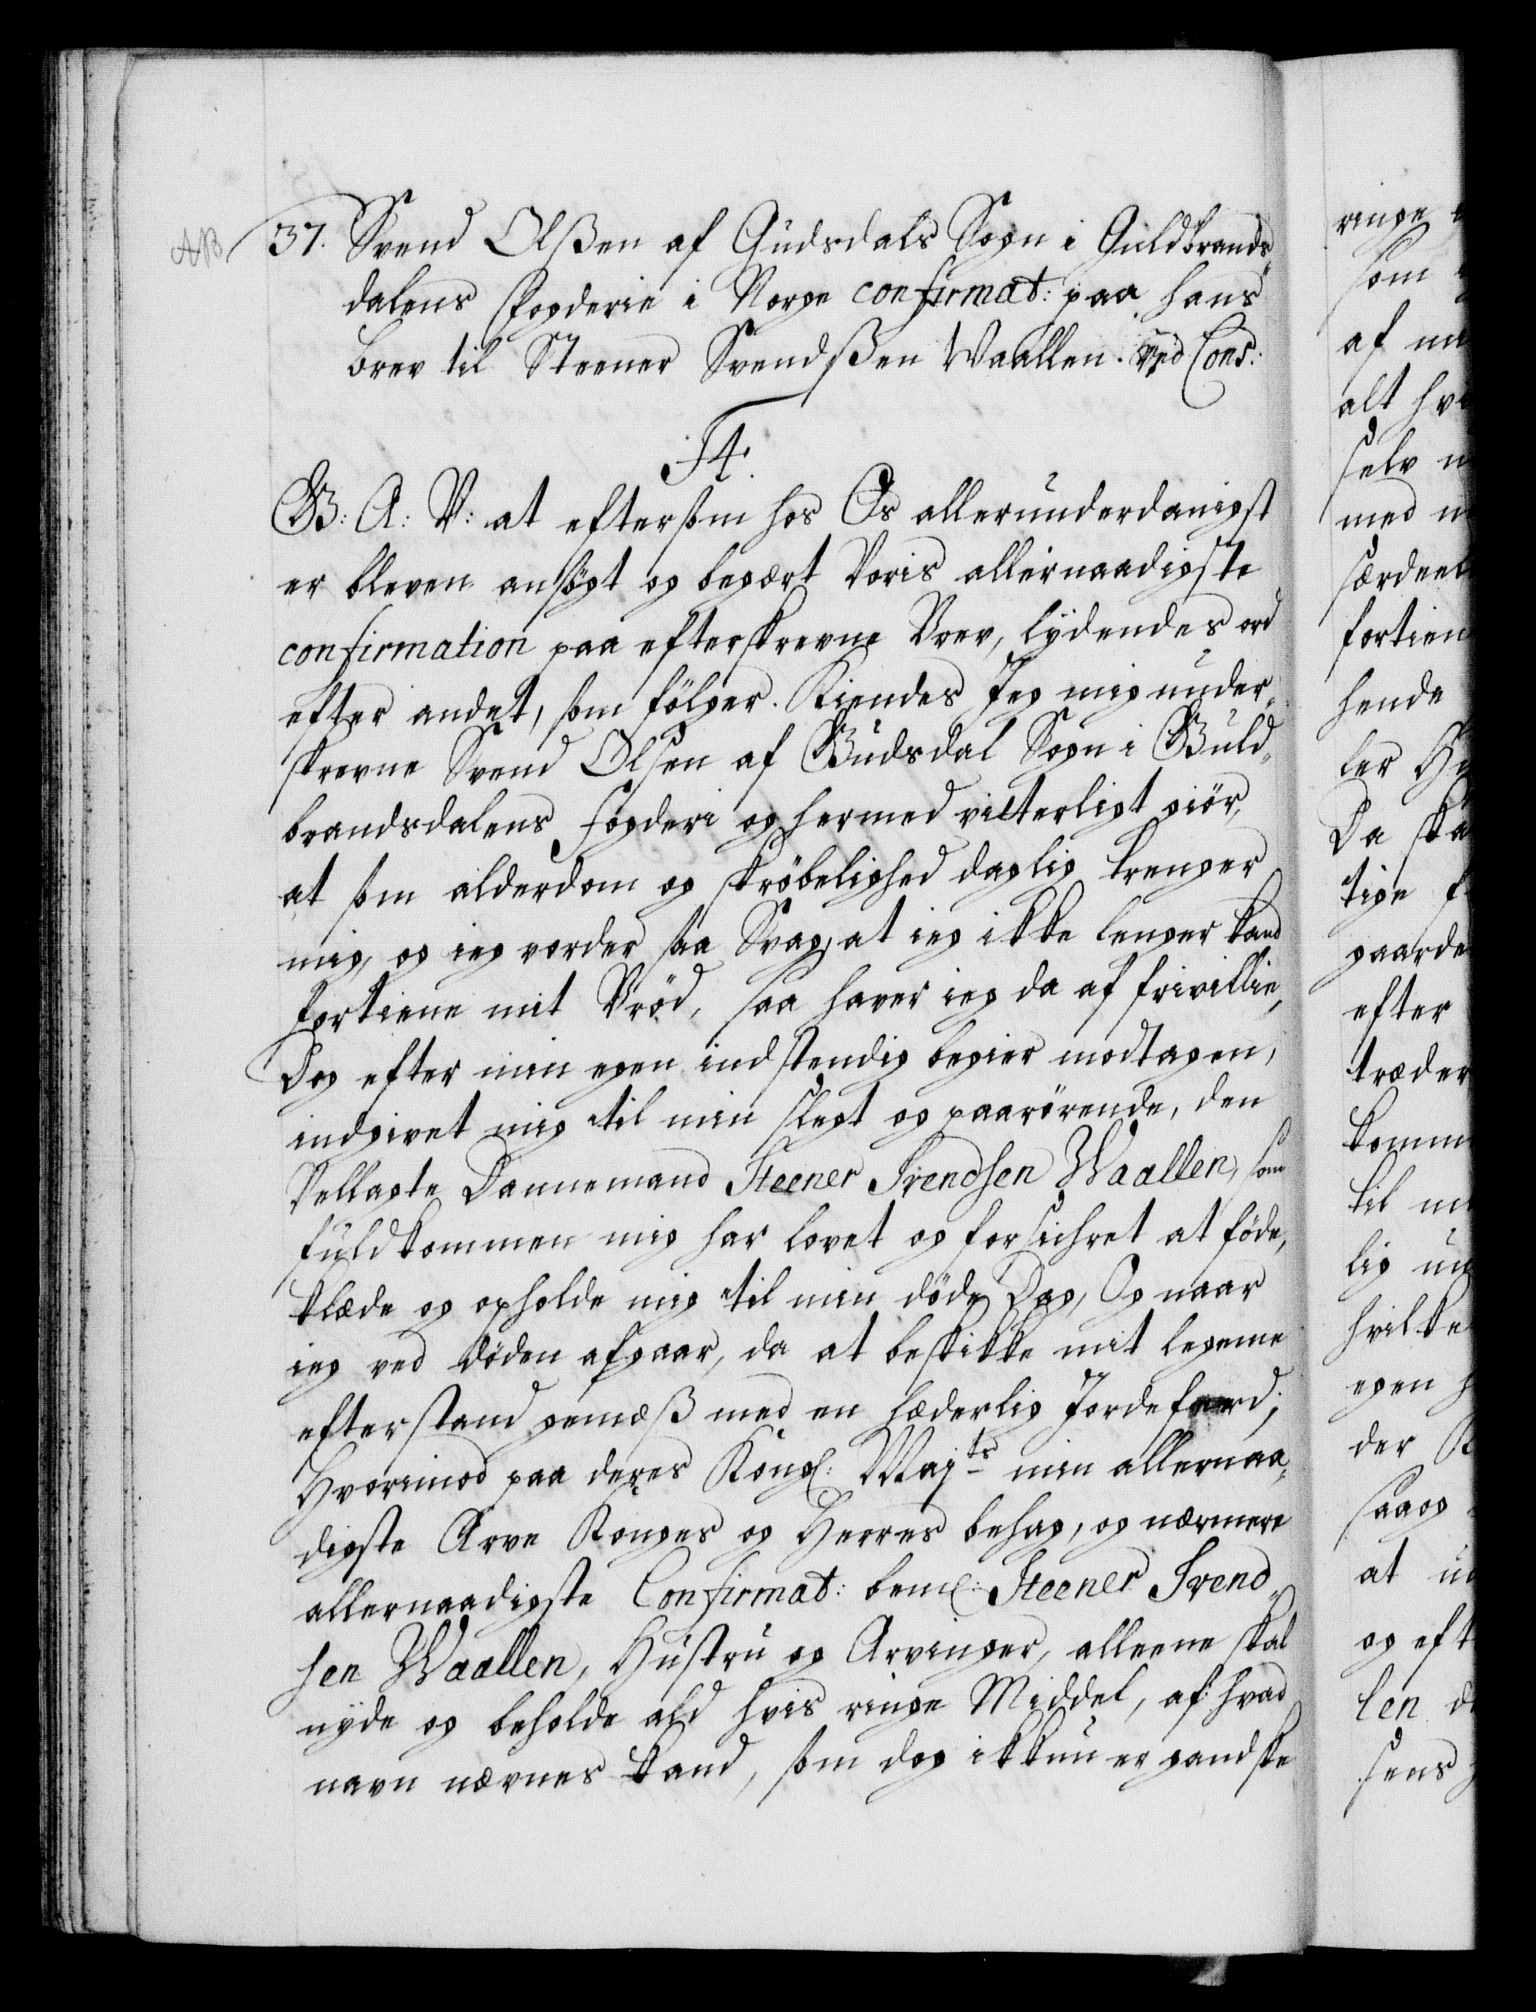 AB
37. Svend Olßen af Gudsdals Sogn i Guldbrands-
dalens Fogderie i Norge confirmat: paa hans
brev til Steener Svendßen Waallen. ved Cons:
F4.
G: A: V: at eftersom hos Os allerunderdanigst
er bleven ansögt og begært Voris allernaadigste
confirmation paa efterskrevne Brev, lydendes ord
efter andet, som fölger. Kiendes Jeg mig under-
skrevne Svend Olsen af Gudsdal Sogn i Guld-
brandsdalens Fogderi og hermed vitterligt giör,
at som alderdom og skröbelighed daglig trenger
mig, og ieg vorder saa Svag, at ieg ikke lenger kand
fortiene mit Bröd, saa haver ieg da af frivillie,
Dog efter min egen indstendig begier modtagen,
indgivet mig til min slegt og paarörende, den
Vellagte Dannemand Steener Svendsen Waallen, som
fuldkommen mig har lovet og forsichret at föde,
klæde og opholde mig til min döde Dag, Og naar
ieg ved döden afgaar, da at beskikke mit legeme
efter stand gemæß med en hæderlig Jordefærd;
Hvorimod paa deres Kongl: Majts min allernaa-
digste Arve Konges og Herres behag, og nærmere
allernaadigste Confirmat: beml: Steener Svend-
sen Waallen, Hustru og Arvinger, alleene skal
nyde og beholde ald hvis ringe Middel, af hvad
navn nævnes kand, som dog ikkun er gandske
ringe
som
af
alt
selv
med
særdeel
fortien
hende
ler
Da
tige
gaarde
efter
træder
komm
til
lig
hvilke
egen
der
saa og
at
og eft
len
sens